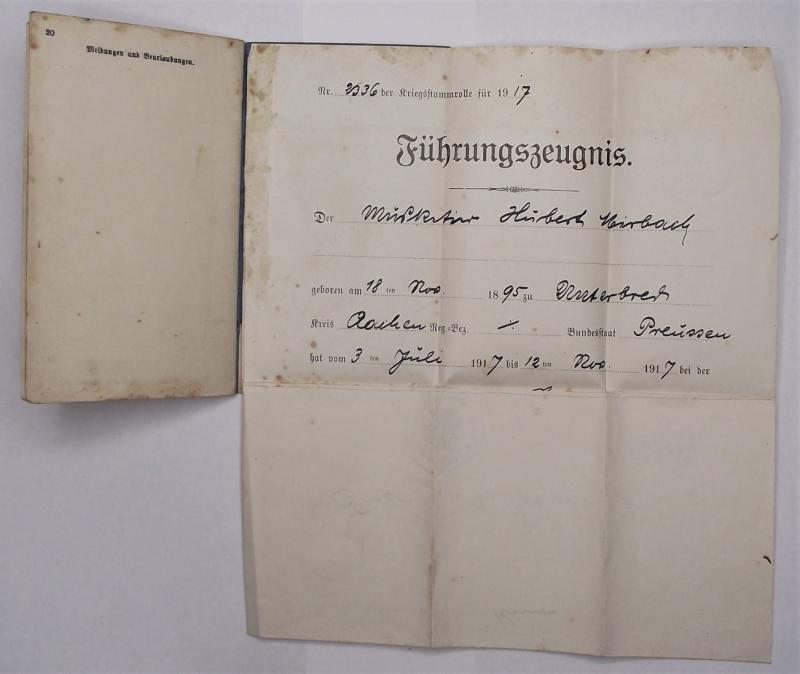 20
Meldungen und Beurlaubungen.
Nr. 2336 der Kriegsstammrolle für 1917
Führungszeugnis.
Der Musketier Hubert Mirbach
geboren am 18ten Nov. 1895 zu
Kreis Aachen Reg.-Bez. Bundesstaat Preussen
hat vom 3ten Juli 1917 bis 12ten Nov. 1917 bei der